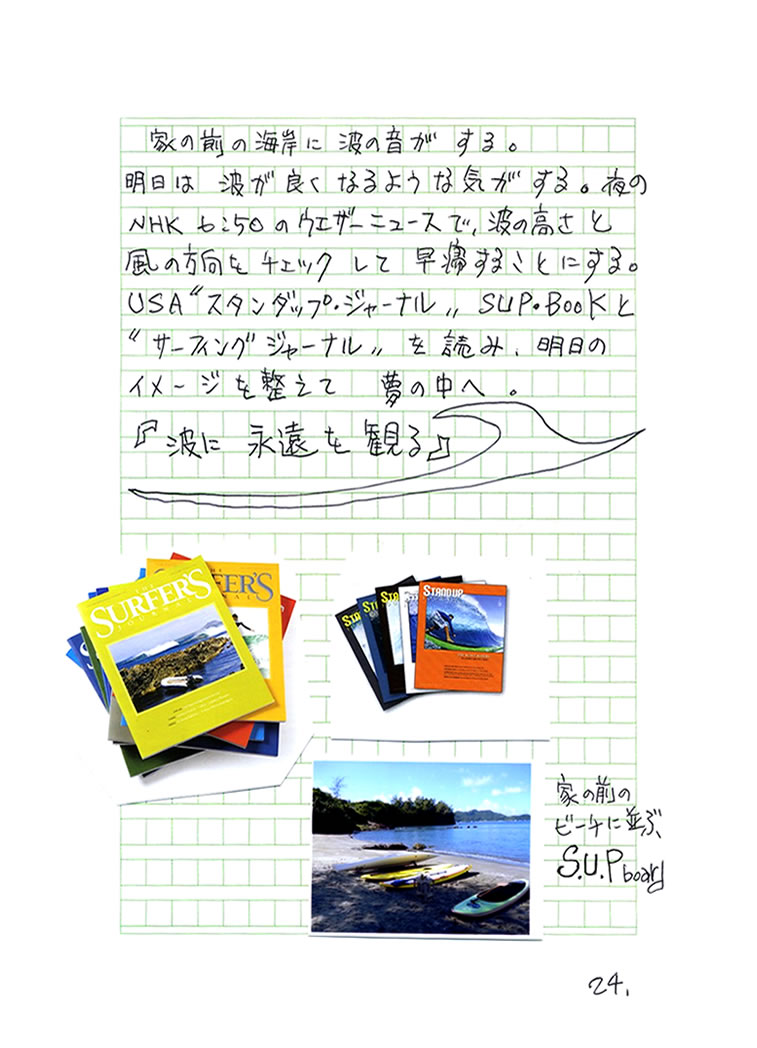 家の前の海岸に 波の音が する。
明日は 波が良くなるような気がする。夜の
NHK 6:50のウエザーニュースで、波の高さと
風の方向をチェックして 早寝することにする。
USA〝スタンダップ・ジャーナル〟 SUP・BOOKと
〝サーフィング ジャーナル〟を読み、明日の
イメージを整えて 夢の中へ。
『波に 永遠を観る』
THE
SURFER'S
JOURNAL
STANDUP
家の前の
ビーチに並ぶ、
S.U.P board
24.